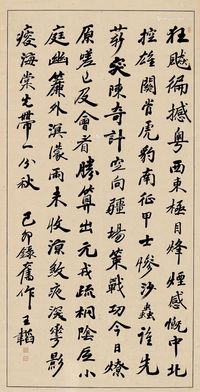 狂飈徧撼粵西東極目烽煙感慨中北
控雄關肖虎豹南征甲士慘沙蟲誰先
薪突陳奇計空向疆場策戰功今日燎
原嗟已及會看勝算出元戎疏桐陰合小
庭幽簾外溟濛雨未收涼教夜深花影
瘦海棠也帶一分秋
己卯錄舊作 王韜